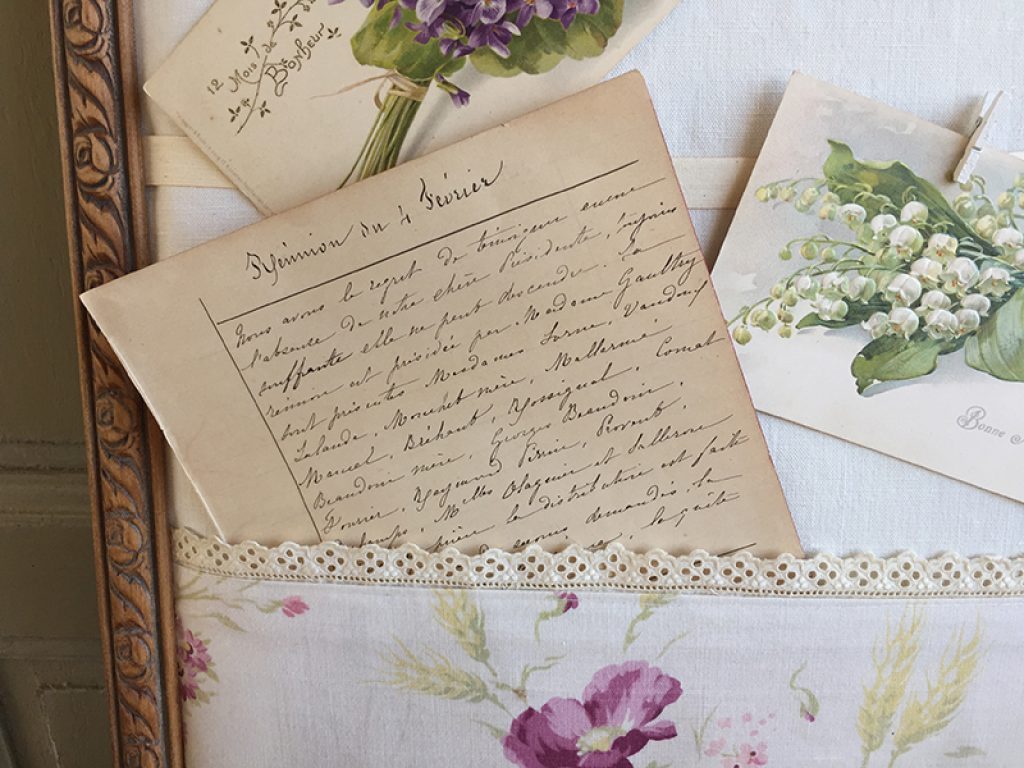 12 Mois de
Bonheur
Réunion du 4 Février
Nous avons le regret de témoigner encore
l'absence de notre chère Présidente, toujours
souffrante elle ne peut descendre. La
réunion est présidée par Madame Gaultry
sont présentes Mesdames Vaudrey
Lalande, Monchet mère, Mallarmé
Manuel, Béchaut, Rossignol, Cornat
Beaudoin mère, Georges Beaudoin,
Fourier, Raymond Perrin, Prevent,
Melles Olagnier et
prière la distribution est faite
secours demandés, la
la quête
Bonne